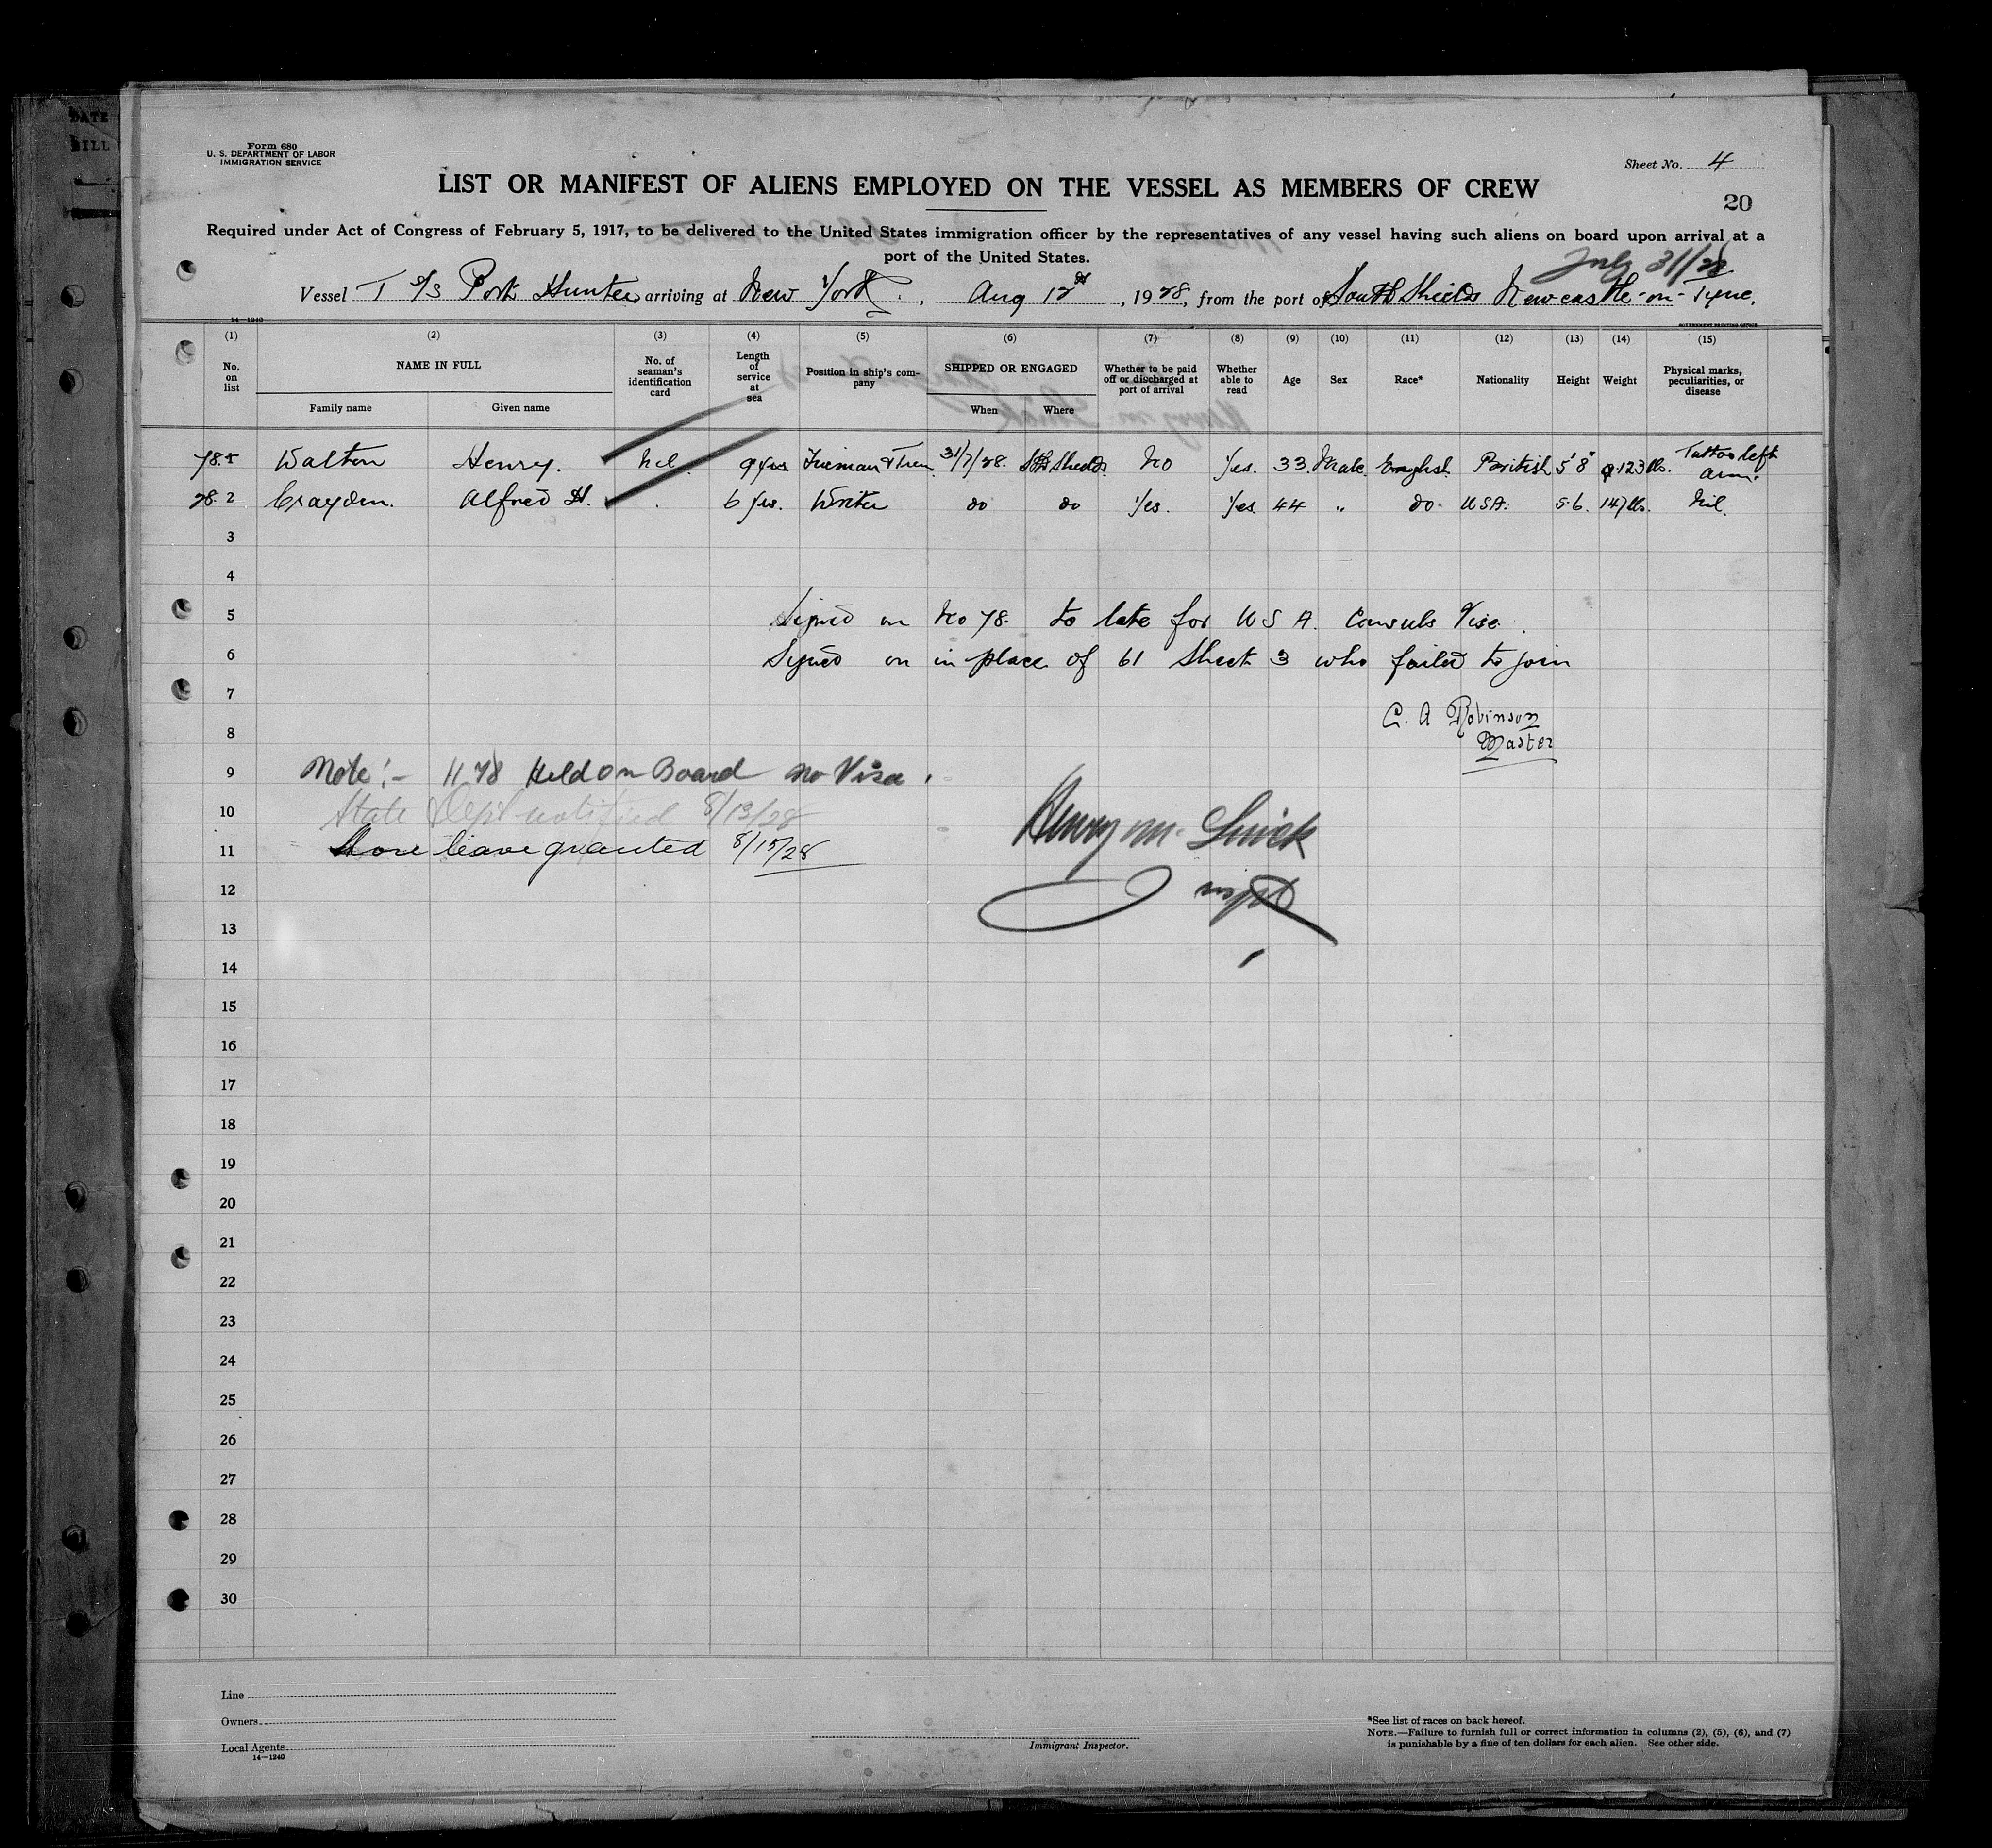 DATE
BILL
Form 680
U. S. DEPARTMENT OF LABOR
IMMIGRATION SERVICE
Sheet No. 4
LIST OR MANIFEST OF ALIENS EMPLOYED ON THE VESSEL AS MEMBERS OF CREW
20
Required under Act of Congress of February 5, 1917, to be delivered to the United States immigration officer by the representatives of any vessel having such aliens on board upon arrival at a
port of the United States.
July 31/28
Vessel T S/S Port Hunter arriving at New York, Aug 12th, 1928, from the port of South Shields Newcastle-on-Tyne.
14—1240
GOVERNMENT PRINTING OFFICE
(1) (2) (3) (4) (5) (6) (7) (8) (9) (10) (11) (12) (13) (14) (15)
No. on list
NAME IN FULL
Family name Given name
No. of seaman's identification card
Length of service at sea
Position in ship's company
SHIPPED OR ENGAGED
When Where
Whether to be paid off or discharged at port of arrival
Whether able to read
Age Sex Race* Nationality Height Weight
Physical marks, peculiarities, or disease
78. 1 Walton Henry. Nil. 9 yrs Fireman & Trim 31/7/28. Sth Shields No Yes. 33. Male English British 5' 8" 123 lbs. Tattoo left arm.
2 Craydon. Alfred H. 6 yrs. Writer do do Yes. Yes. 44 " do. USA. 5.6. 147 lbs. Nil.
3
4
5 Signed on No 78. to late for U S A. Consuls Vise.
6 Signed on in place of 61 Sheet 3 who failed to join
7 C. A Robinson
8 Master
9 Note:- # 78 Held on Board no Visa.
10 State Dept notified 8/13/28
11 Shore leave granted 8/15/28
Henry M.
12 inspt
13
14
15
16
17
18
19
20
21
22
23
24
25
26
27
28
29
30
Line
Owners
Local Agents
14—1240
Immigrant Inspector.
*See list of races on back hereof.
NOTE.—Failure to furnish full or correct information in columns (2), (5), (6), and (7)
is punishable by a fine of ten dollars for each alien. See other side.